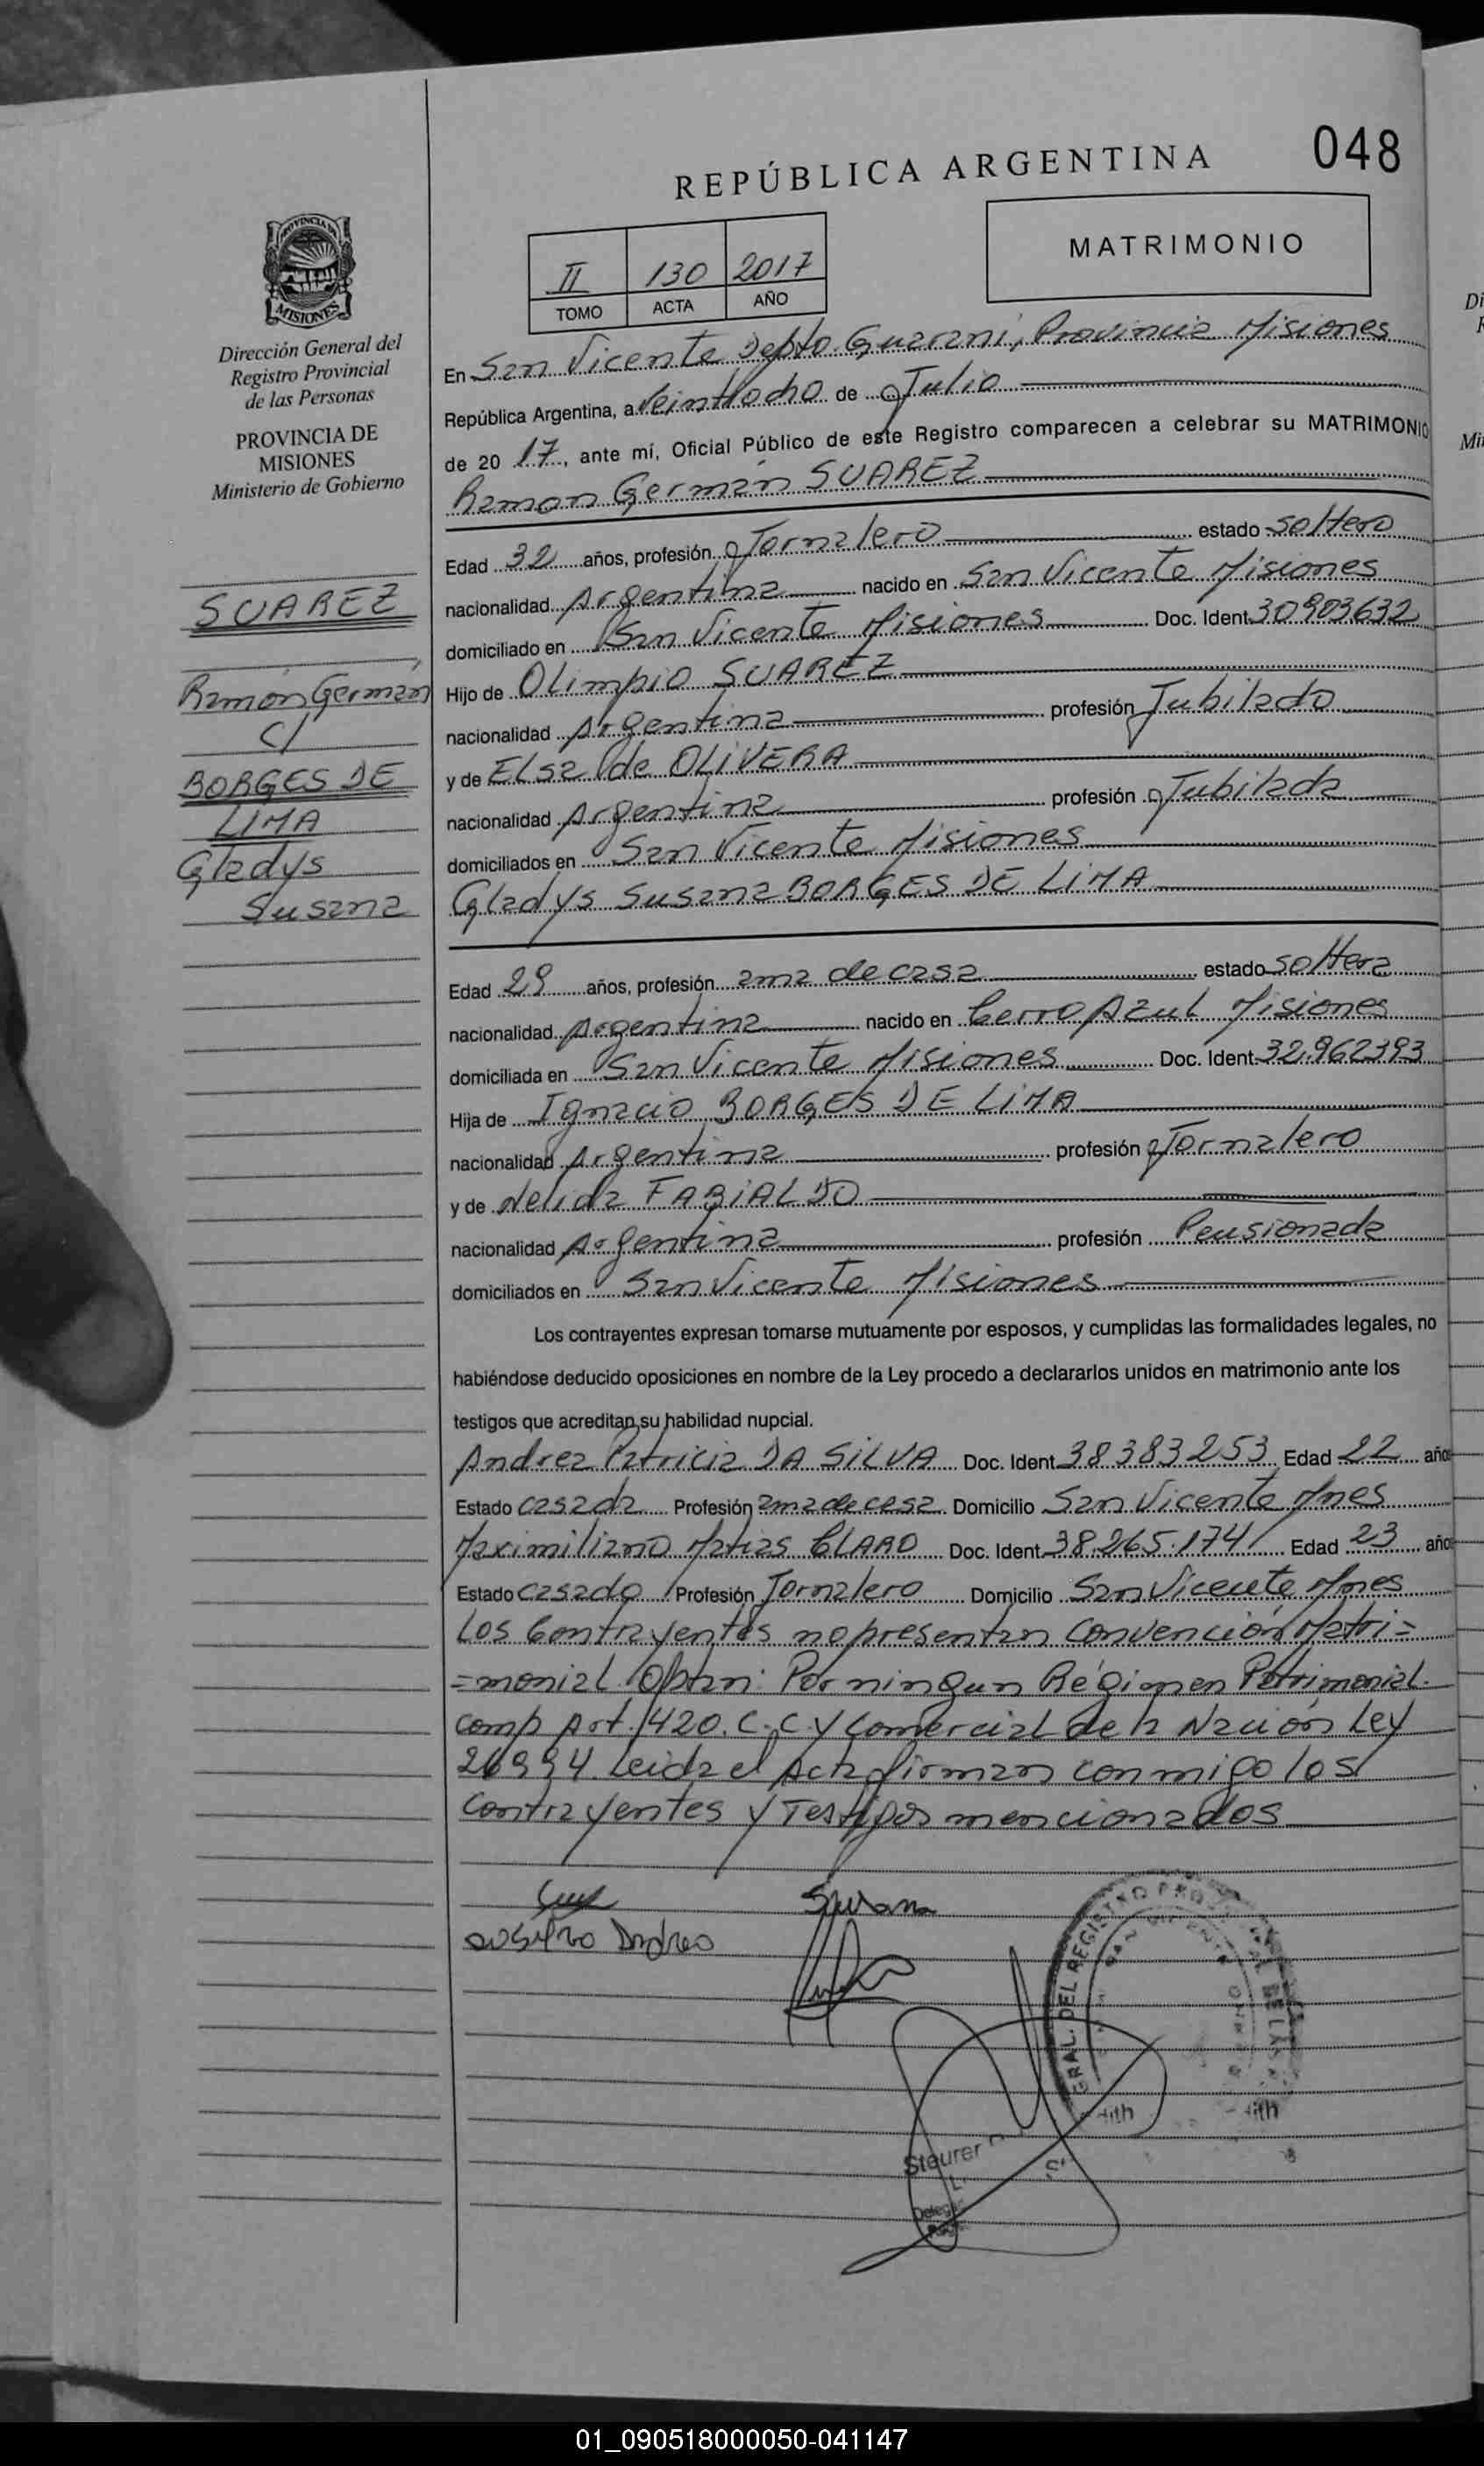 048
REPÚBLICA ARGENTINA
MATRIMONIO
II 130 2017
TOMO ACTA AÑO
PROVINCIA DE
MISIONES
Dirección General del
Registro Provincial
de las Personas
PROVINCIA DE
MISIONES
Ministerio de Gobierno
SUAREZ
Ramón Germán
c/
BORGES DE
LIMA
Gladys
Susana
En San Vicente Depto. Guaraní, Provincia Misiones
República Argentina, a Veintiocho de Julio
de 20 17, ante mí, Oficial Público de este Registro comparecen a celebrar su MATRIMONIO
Ramon Germán SUAREZ
Edad 32 años, profesión Jornalero estado soltero
nacionalidad Argentina nacido en San Vicente Misiones
domiciliado en San Vicente Misiones Doc. Ident. 30903632
Hijo de Olimpio SUAREZ
nacionalidad Argentina profesión Jubilado
y de Elsa de OLIVERA
nacionalidad Argentina profesión Jubilada
domiciliados en San Vicente Misiones
Gladys Susana BORGES DE LIMA
Edad 29 años, profesión ama de casa estado soltera
nacionalidad Argentina nacido en Cerro Azul Misiones
domiciliada en San Vicente Misiones Doc. Ident. 32.962393
Hija de Ignacio BORGES DE LIMA
nacionalidad Argentina profesión Jornalero
y de Nelida FABIALDO
nacionalidad Argentina profesión Pensionada
domiciliados en San Vicente Misiones
Los contrayentes expresan tomarse mutuamente por esposos, y cumplidas las formalidades legales, no
habiéndose deducido oposiciones en nombre de la Ley procedo a declararlos unidos en matrimonio ante los
testigos que acreditan su habilidad nupcial.
Andrea Patricia DA SILVA Doc. Ident. 38383253 Edad 22 año
Estado casada Profesión ama de casa Domicilio San Vicente Mnes
Maximiliano Matias CLARO Doc. Ident. 38.265.174 Edad 23 año
Estado casado Profesión Jornalero Domicilio San Vicente Mnes
Los Contrayentes no presentan Convención Matri=
=monial. Optan: Por ningun Régimen Patrimonial.
comp Art. 420. C.C. y Comercial de la Nación Ley
26994. Leida el Acta firman conmigo los
Contrayentes y Testigos mencionados
Susana
GRAL. DEL REGISTRO
Steurer
01_090518000050-041147